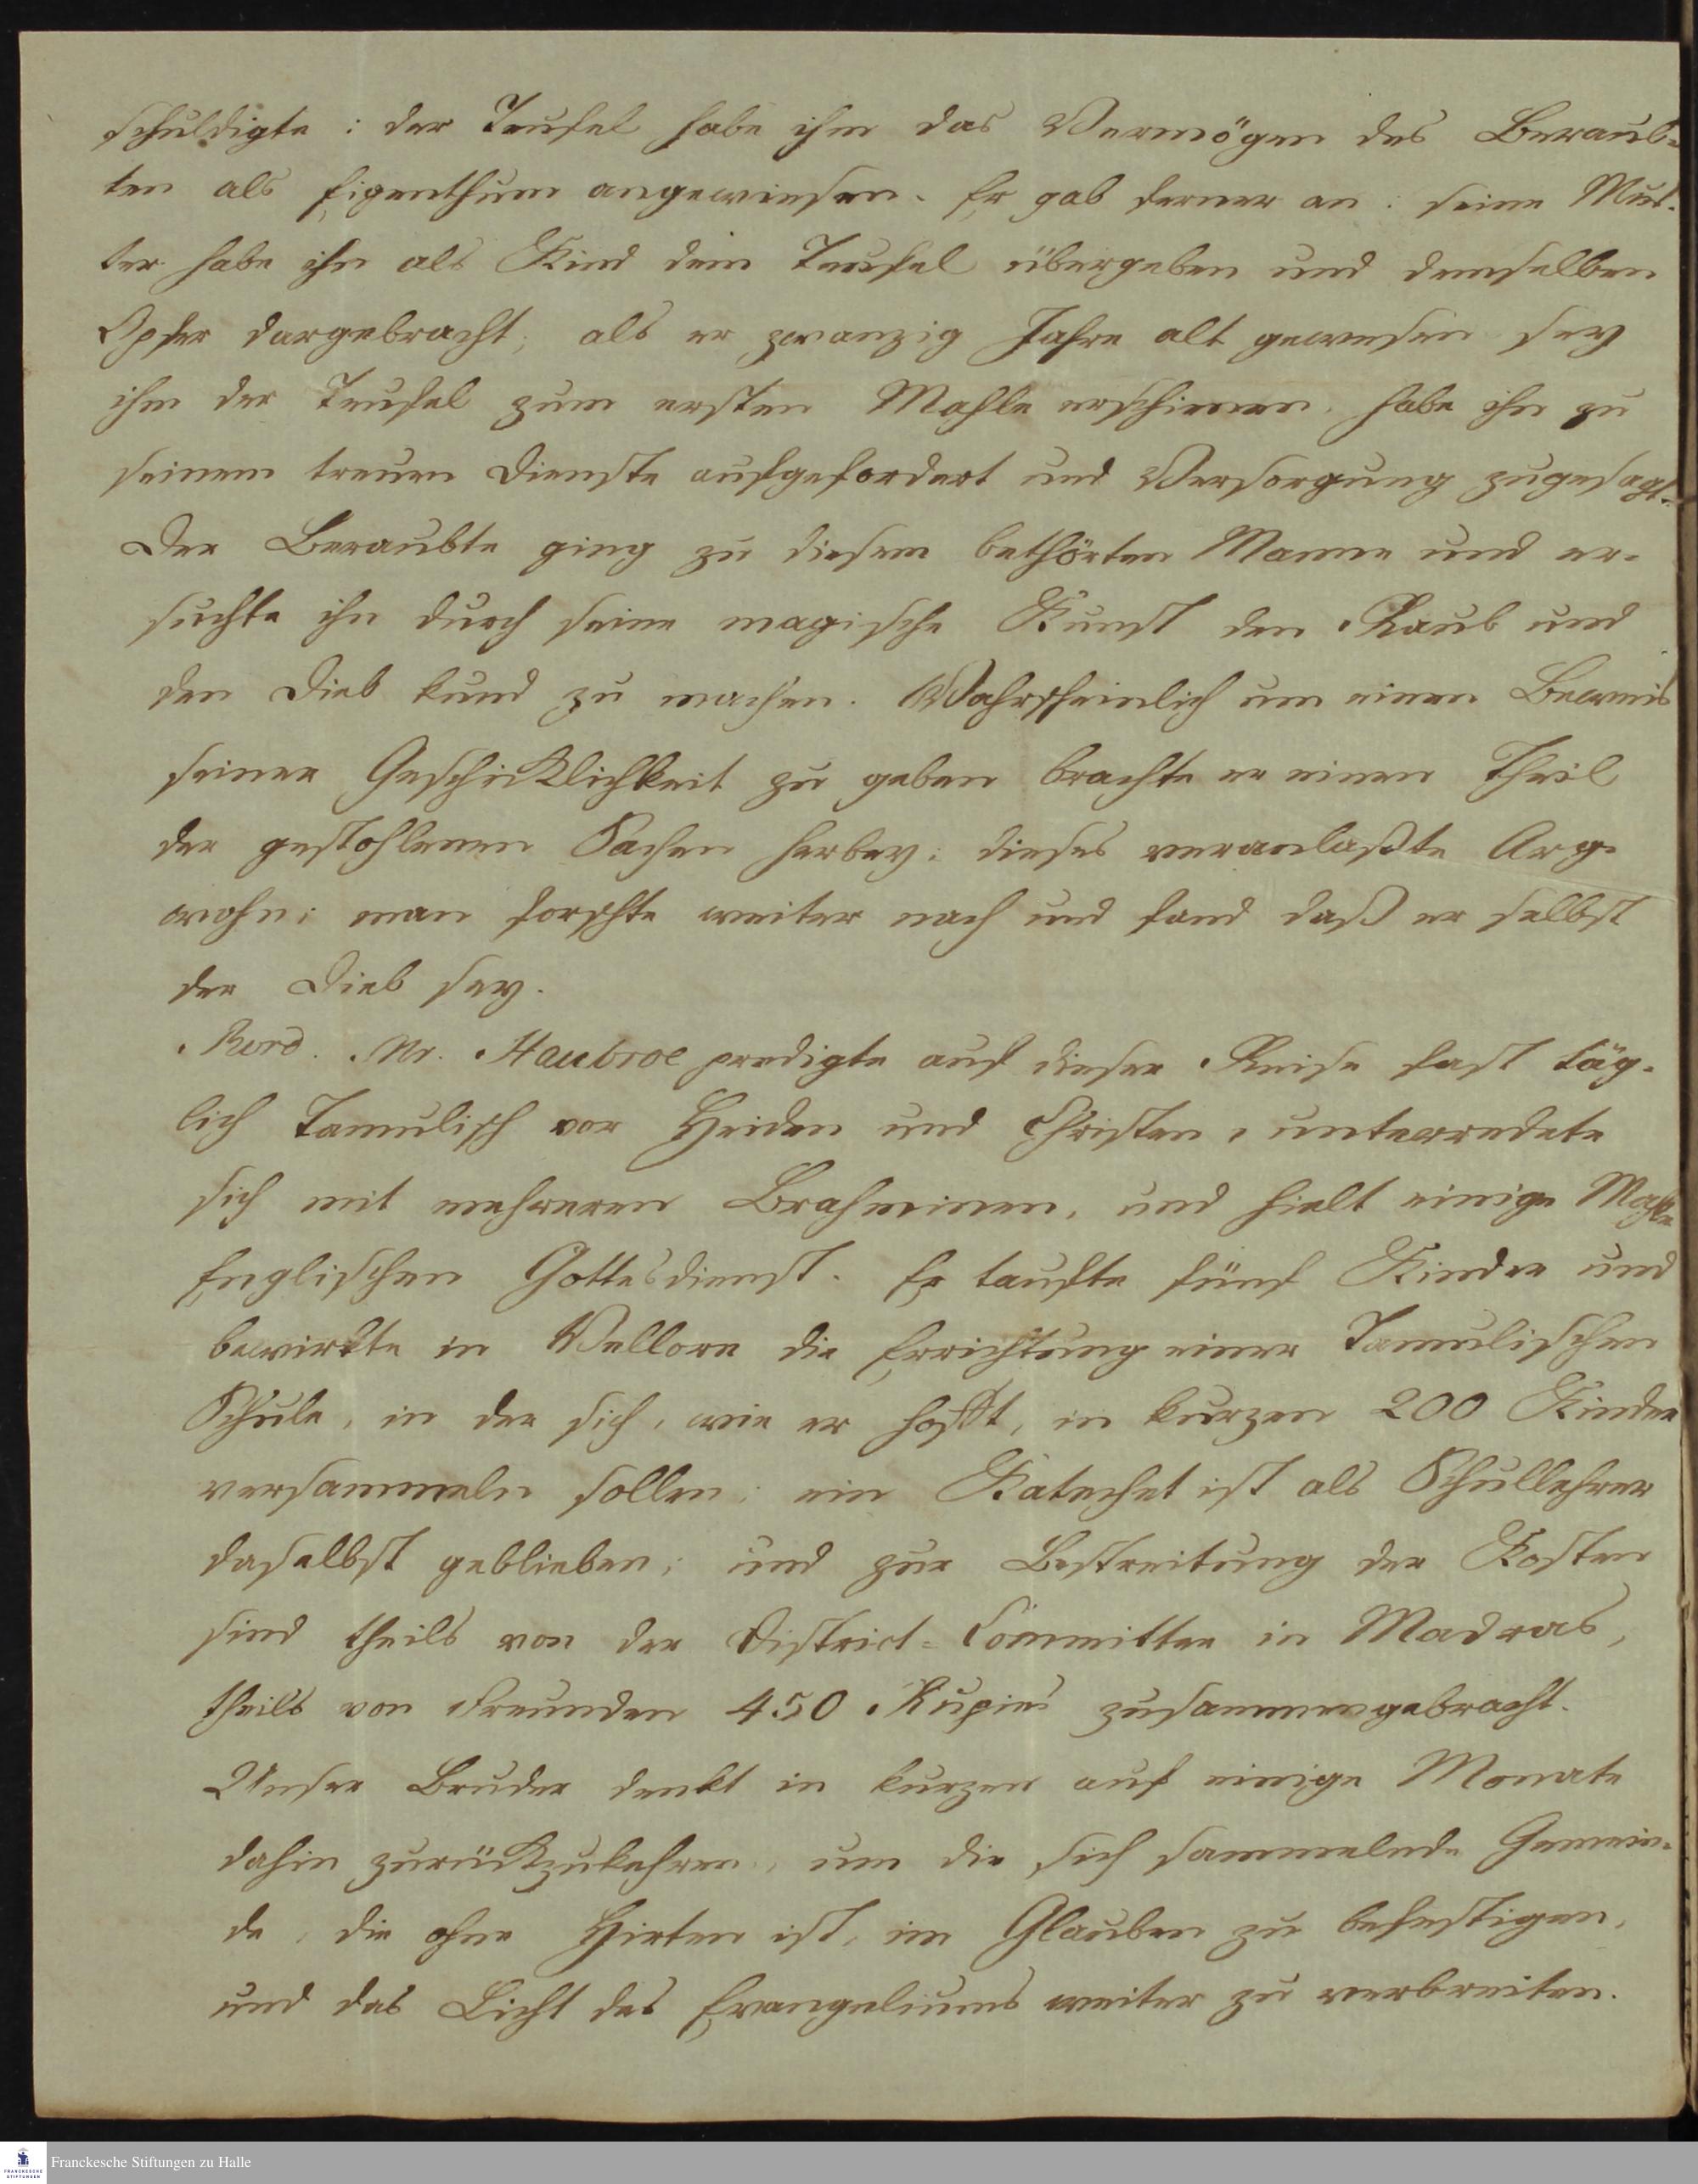 schuldigte: der Teufel habe ihm das Vermögen des Beraub-
ten als Eigenthum angewiesen. Er gab ferner an: seine Mut-
ter habe ihn als Kind dem Teufel übergeben und demselben
Opfer dargebracht; als er zwanzig Jahre alt gewesen sey
ihm der Teufel zum ersten Mahle erschienen, habe ihn zu
seinem treuen Dienste aufgefordert und Versorgung zugesagt.
Der Beraubte ging zu diesem bethörten Manne und er-
suchte ihn durch seine magische Kunst den Raub und
den Dieb kund zu machen. Wahrscheinlich um einen Beweis
seiner Geschicklichkeit zu geben brachte er einen Theil
der gestohlenen Sachen herbey; dieses veranlaßte Arg-
wohn; man forschte weiter nach und fand daß er selbst
der Dieb sey.
Revd. Mr. Haubroe predigte auf dieser Reise fast täg-
lich Tamulisch vor Heiden und Christen, unterredete
sich mit mehreren Brahminen, und hielt einige Mahle
Englischen Gottesdienst. Er taufte fünf Kinder und
bewirkte in Vellore die Errichtung einer Tamulischen
Schule, in der sich, wie er hofft, in kurzen 200 Kinder
versammeln sollen; ein Katechet ist als Schullehrer
daselbst geblieben; und zur Bestreitung der Kosten
sind theils von der District-Committee in Madras,
theils von Freunden 450 Rupies zusammengebracht.
Unser Bruder denkt in kurzen auf einige Monate
dahin zurückzukehren, um die sich sammelnde Gemein-
de, die ohne Hirten ist, im Glauben zu befestigen,
und das Licht des Evangeliums weiter zu verbreiten.
FRANCKESCHE STIFTUNGEN
Franckesche Stiftungen zu Halle